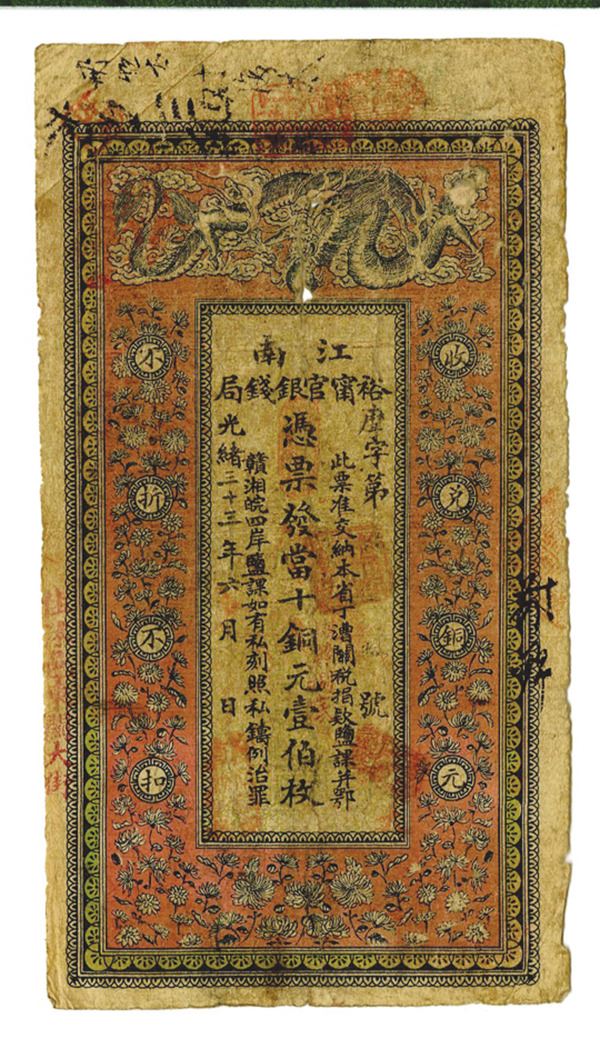 江南
裕甯官銀錢局
收兌銅元
字第 號
此票准交納本省丁漕關稅捐款鹽課并鄂
憑票發當十銅元壹伯枚
贛湘皖四岸鹽課如有私刻照私鑄例治罪
光緒三十三年六月 日
不折不扣
大街